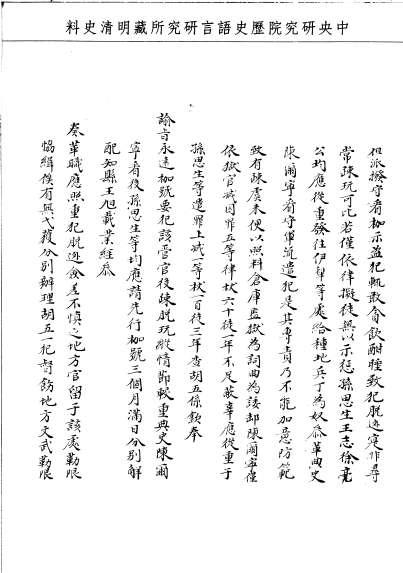 中央研究院歷史語言研究所藏明清史料
担派撥守看枷示盜犯輒敢貪飲酣睡致犯脫逃寔非尋
常疎玩可比若僅依律擬徒無以示懲孫思生王志徐亮
公均應從重發往伊犁等處給種地兵丁為奴叅革典史
陳爾寧看守軍流遣犯是其專責乃不能加意防範
致有疎虞未便以照料倉庫監獄為詞曲為諉卸陳爾寧僅
依獄官減囚罪五等律杖六十徒一年不足蔽辜應從重于
孫思生等遣罪上減一等杖一百徒三年查胡五係欽奉
諭旨永遠枷號要犯該營官役疎脫玩縱情節較重典史陳爾
寧看役孫思生等均應請先行枷號三個月滿日分別解
配知縣王旭載業經叅
奏革職應照重犯脫逃僉差不慎之地方官留于該處勒限
協緝俟有無弋獲分別辦理胡五一犯督飭地方文武勒限